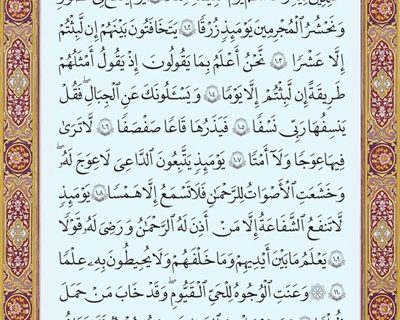 وَنَحْشُرُ ٱلْمُجْرِمِينَ يَوْمَئِذٍ زُرْقًا ١٠٢ يَتَخَٰفَتُونَ بَيْنَهُمْ إِن لَّبِثْتُمْ
إِلَّا عَشْرًا ١٠٣ نَّحْنُ أَعْلَمُ بِمَا يَقُولُونَ إِذْ يَقُولُ أَمْثَلُهُمْ
طَرِيقَةً إِن لَّبِثْتُمْ إِلَّا يَوْمًا ١٠٤ وَيَسْـَٔلُونَكَ عَنِ ٱلْجِبَالِ فَقُلْ
يَنسِفُهَا رَبِّى نَسْفًا ١٠٥ فَيَذَرُهَا قَاعًا صَفْصَفًا ١٠٦ لَّا تَرَىٰ
فِيهَا عِوَجًا وَلَآ أَمْتًا ١٠٧ يَوْمَئِذٍ يَتَّبِعُونَ ٱلدَّاعِىَ لَا عِوَجَ لَهُۥ
وَخَشَعَتِ ٱلْأَصْوَاتُ لِلرَّحْمَٰنِ فَلَا تَسْمَعُ إِلَّا هَمْسًا ١٠٨ يَوْمَئِذٍ
لَّا تَنفَعُ ٱلشَّفَٰعَةُ إِلَّا مَنْ أَذِنَ لَهُ ٱلرَّحْمَٰنُ وَرَضِىَ لَهُۥ قَوْلًا
١٠٩ يَعْلَمُ مَا بَيْنَ أَيْدِيهِمْ وَمَا خَلْفَهُمْ وَلَا يُحِيطُونَ بِهِۦ عِلْمًا
١١٠ ۞ وَعَنَتِ ٱلْوُجُوهُ لِلْحَىِّ ٱلْقَيُّومِ وَقَدْ خَابَ مَنْ حَمَلَ